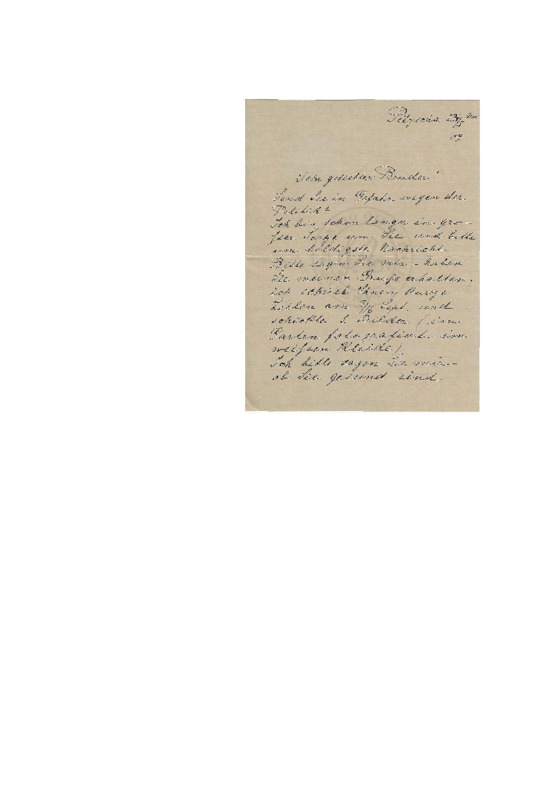 Sehr geehrter Bruder!
Sind Sie in Gefahr wegen der
Politik?
Ich bin schon lange in gro-
ßer Sorge um Sie und bitte
um baldigste Nachricht.
Bitte sagen Sie mir - haben
Sie meinen Gruß erhalten.
Ich schrieb Ihnen kurze
Zeilen am Sept. und
schickte 2 Bilder (im
Garten fotografiert im
weißen Kleide).
Ich bitte sagen Sie mir -
ob Sie gesund sind.